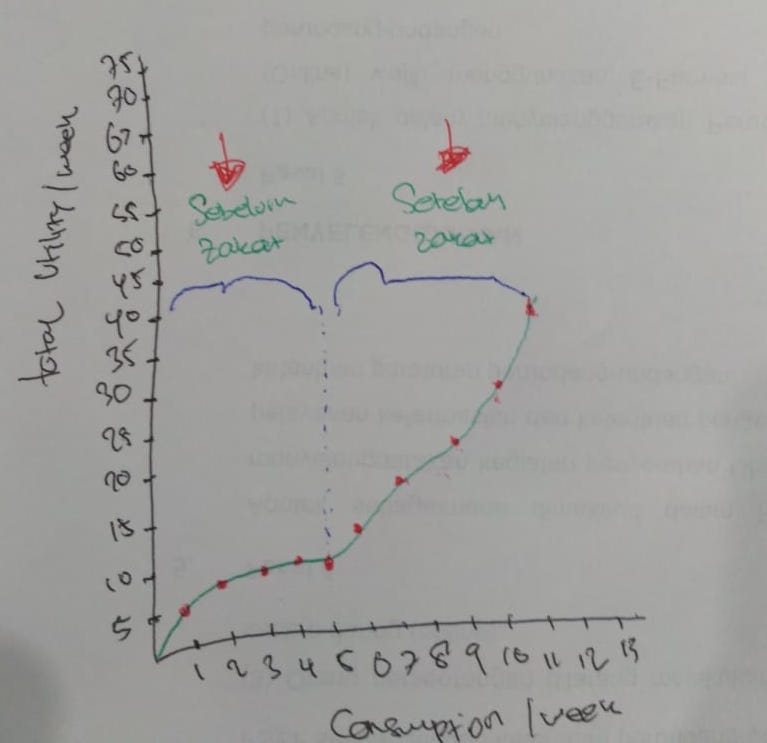 75
70
67
60
55
50
45
40
35
30
25
20
15
10
5
total Utility/week
Sebelum
zakat
Setelah
zakat
1 2 3 4 5 6 7 8 9 10 11 12 13
Consumption /week